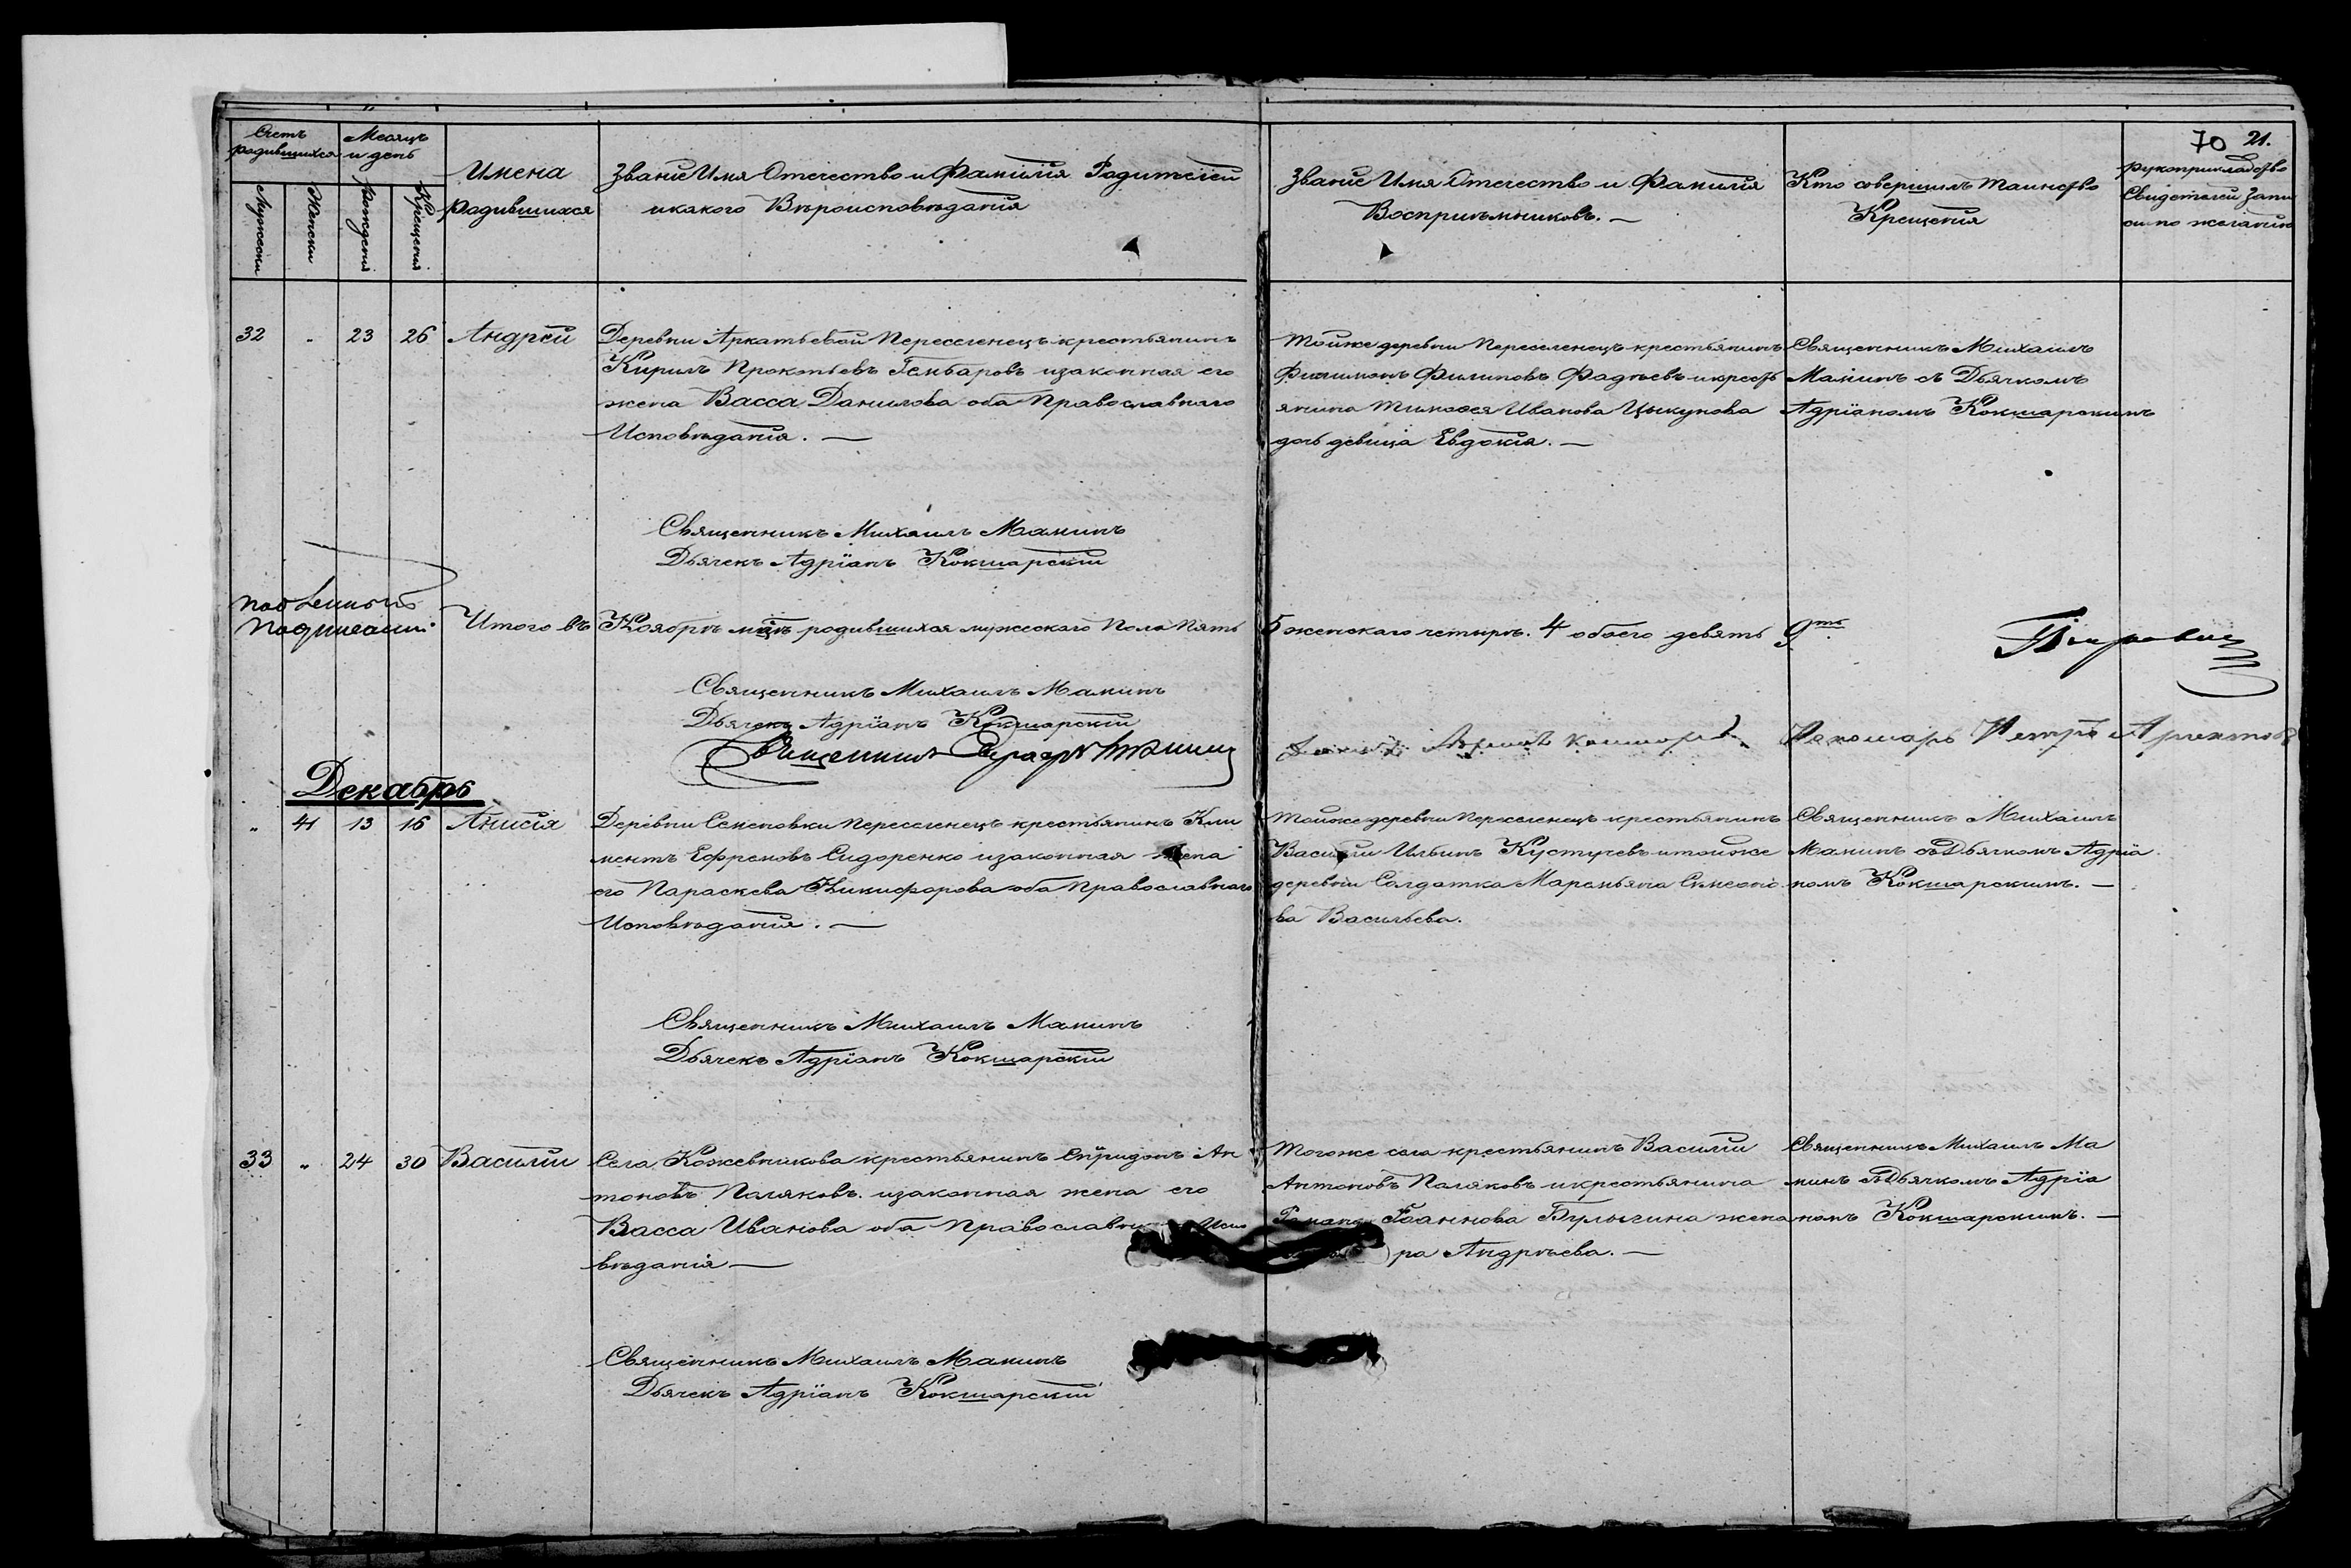 70 21.
Счетъ родившихся
Мужески
Женски
Месяцъ и день
Рождения
Крещения
Имена
родившихся
Званіе Имя Отечество и Фамилія Родителей
и какого Вѣроисповѣданія
Званіе Имя Отечество и Фамилія
Воспріемниковъ. —
Кто совершилъ таинство
Крещенія
рукоприкладство
Свидетелей запи
си по желанію
32 „ 23 26 Андрей
Деревни Аркатьевой Переселенецъ крестьянинъ
Кирилъ Прокопьевъ Гамбаровъ и законная его
жена Васса Данилова оба Православнаго
Исповѣданія. —
Тойже деревни Переселенецъ крестьянинъ
Филимонъ Филиповъ Фадѣевъ и кресть
янина Тимофея Иванова Цыкунова
дочь девица Евдокія. —
Священникъ Михаилъ
Маминъ съ Дьячкомъ
Адріаномъ Кокшарскимъ
Священникъ Михаилъ Маминъ
Дьячекъ Адріанъ Кокшарскій
Итого въ Ноябрѣ мцѣ родившихся мужескаго Пола Пять 5 женскаго четыре. 4 обоего девять 9ть.
Священникъ Михаилъ Маминъ
Дьячекъ Адріанъ Кокшарскій
Священникъ
Пономарь Петръ
Декабрь
„ 41 13 16 Анисія
Деревни Семеновки Переселенецъ крестьянинъ Кли
ментъ Ефремовъ Сидоренко и законная жена
его Параскева Никифорова оба Православнаго
Исповѣданія. —
Тойже деревни Переселенецъ крестьянинъ
Василій Ильинъ Кустучевъ и тойже
деревни Солдатка Маремьяна Симеоно
ва Васильева.
Священникъ Михаилъ
Маминъ съ Дьячкомъ Адріа
номъ Кокшарскимъ. —
Священникъ Михаилъ Маминъ
Дьячекъ Адріанъ Кокшарскій
33 „ 24 30 Василій
Села Кожевникова крестьянинъ Спиридонъ Ан
тоновъ Поляковъ. и законная жена его
Васса Иванова оба Православнаго Испо
вѣданія —
Тогоже села крестьянинъ Василій
Антоновъ Поляковъ и крестьянина
Романа Іоаннова Булыгина жена
ра Андрѣева. —
Священникъ Михаилъ Ма
минъ съ Дьячкомъ Адріа
номъ Кокшарскимъ. —
Священникъ Михаилъ Маминъ
Дьячекъ Адріанъ Кокшарскій